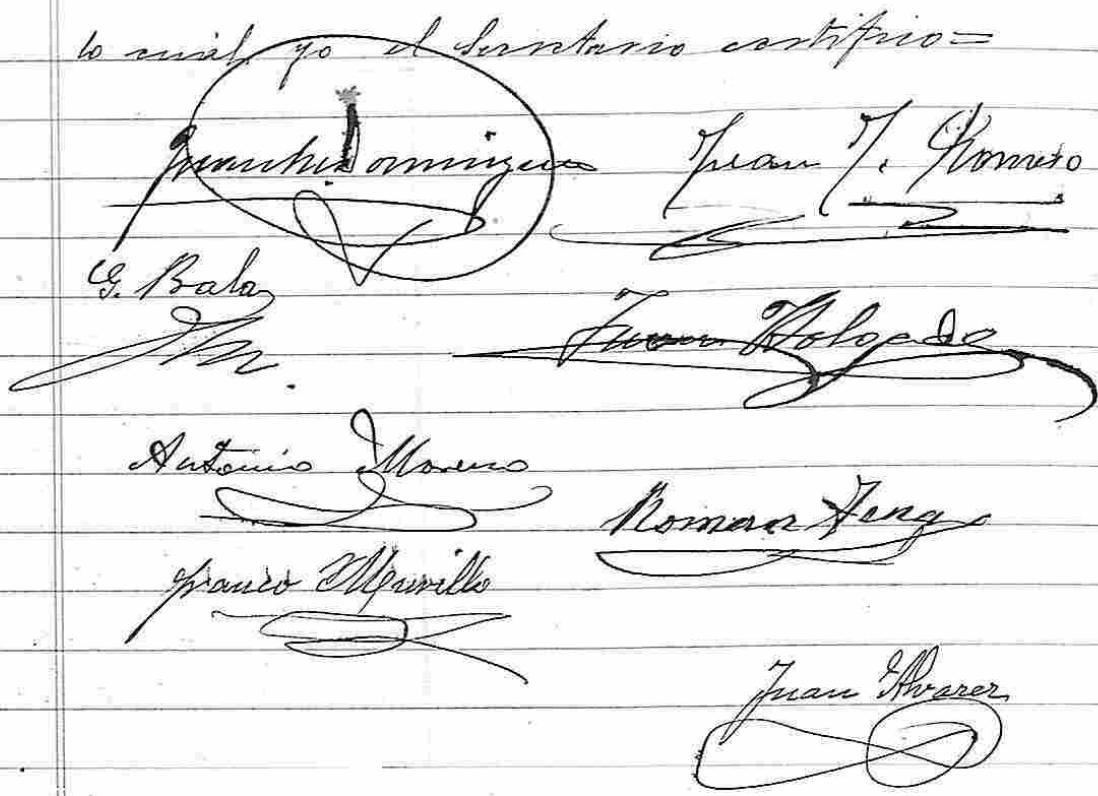 lo cuál yo el Secretario certifico=
Dominguez Juan J. Romero
G. Bala
Juan Holgado
Antonio Moreno
Roman
Franco Murillo
Juan Alvarez